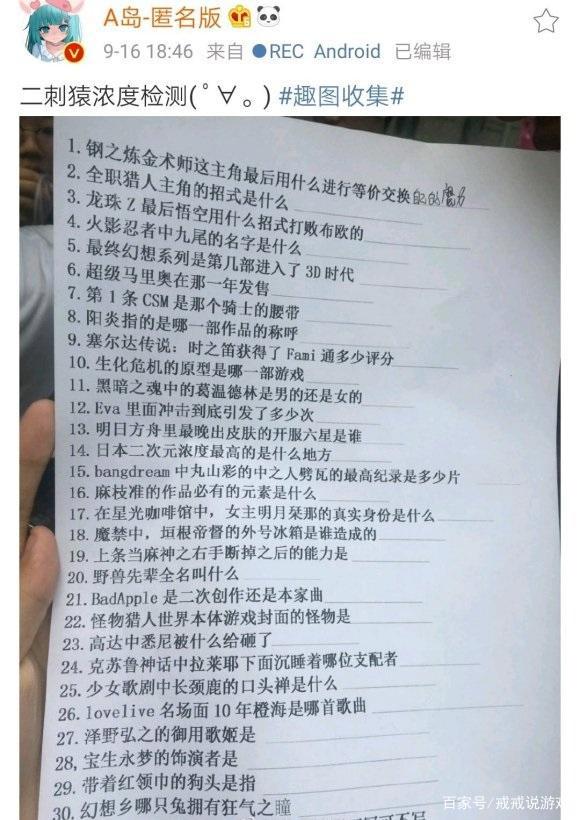 A岛-匿名版
9-16 18:46 来自 REC Android 已编辑
二刺猿浓度检测(ﾟ∀。) #趣图收集#
1. 钢之炼金术师这主角最后用什么进行等价交换
2. 全职猎人主角的招式是什么
3. 龙珠 Z 最后悟空用什么招式打败布欧的
4. 火影忍者中九尾的名字是什么
5. 最终幻想系列是第几部进入了 3D 时代
6. 超级马里奥在那一年发售
7. 第 1 条 CSM 是那个骑士的腰带
8. 阳炎指的是哪一部作品的称呼
9. 塞尔达传说：时之笛获得了 Fami 通多少评分
10. 生化危机的原型是哪一部游戏
11. 黑暗之魂中的葛温德林是男的还是女的
12. Eva 里面冲击到底引发了多少次
13. 明日方舟里最晚出皮肤的开服六星是谁
14. 日本二次元浓度最高的是什么地方
15. bangdream 中丸山彩的中之人劈瓦的最高纪录是多少片
16. 麻枝准的作品必有的元素是什么
17. 在星光咖啡馆中，女主明月栞那的真实身份是什么
18. 魔禁中，垣根帝督的外号冰箱是谁造成的
19. 上条当麻神之右手断掉之后的能力是
20. 野兽先辈全名叫什么
21. BadApple 是二次创作还是本家曲
22. 怪物猎人世界本体游戏封面的怪物是
23. 高达中悉尼被什么给砸了
24. 克苏鲁神话中拉莱耶下面沉睡着哪位支配者
25. 少女歌剧中长颈鹿的口头禅是什么
26. lovelive 名场面 10 年橙海是哪首歌曲
27. 泽野弘之的御用歌姬是
28, 宝生永梦的饰演者是
29. 带着红领巾的狗头是指
30. 幻想乡哪只兔拥有狂气之瞳
百家号/戒戒说游戏